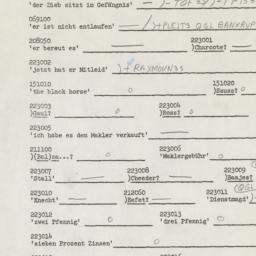 'der Dieb sitzt im Gefängnis'
059100
'er ist nicht entlaufen' )+PLEITS QGL BANKRUP
208050 223001
'er bereut es' )Charoote?
223002
'jetzt hat er Mitleid' )+RAXMOUNES
151010 151020
'the black horse' 0 )Heuss? 0
223003 223004
)Gaul? 0 )Ross? 0
223005
'ich habe es dem Makler verkauft'
211100 223006
)(Bel)za...? 0 'Maklergebühr' 0
223007 223008 223009
'Stall' )Cheeder? )Baajes?
223010 212050 223011 (QGL
'Knecht' )Hefet? 'Dienstmagd'
223012 223013
'zwei Pfennig' 0 'drei Pfennig' 0
223014
'sieben Prozent Zinsen' 0